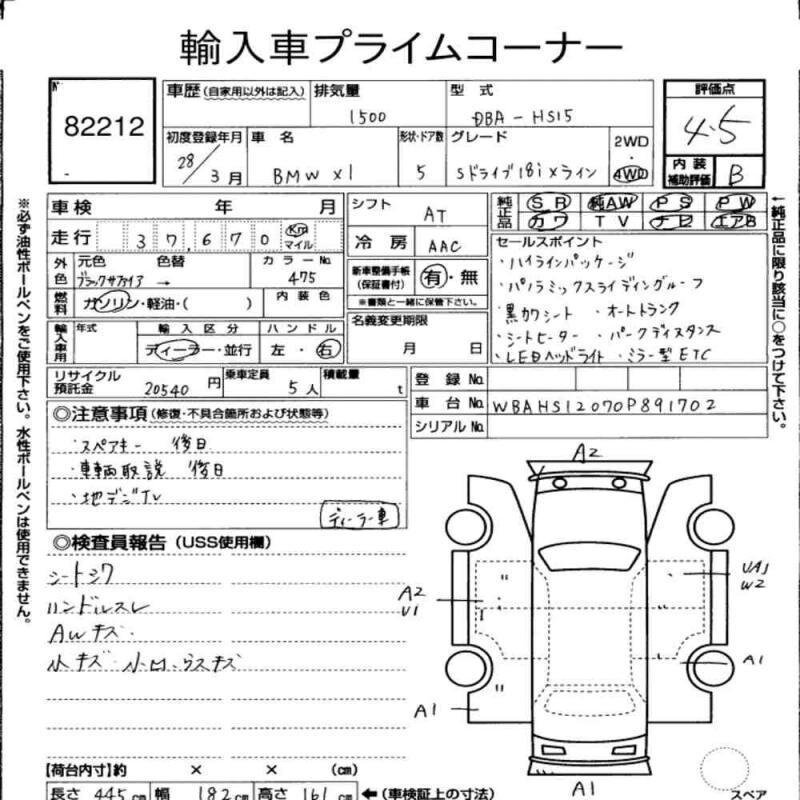 輸入車プライムコーナー
82212
車歴 (自家用以外は記入) 排気量 1500 型式 DBA-HS15 評価点 4.5
初度登録年月 28/3月 車名 BMW X1 形状・ドア数 5 グレード Sドライブ18i Xライン 2WD・4WD 内装補助評価 B
車検 年 月 シフト AT 純正品 SR 純AW PS PW
カワ TV ナビ エアB
走行 37,670 Km マイル 冷房 AAC
外色 元色 ブラックサファイア → 色替 カラーNo. 475
新車整備手帳(保証書付) 有・無
※書類と一緒に保管下さい。
燃料 ガソリン・軽油・( ) 内装色
輸入車用 年式 輸入区分 ディーラー・並行 ハンドル 左・右
名義変更期限 月 日
セールスポイント
・ハイラインパッケージ
・パノラミックスライディングルーフ
・黒カワシート ・オートトランク
・シートヒーター ・パークディスタンス
・LEDヘッドライト ・ミラー型ETC
リサイクル預託金 20540円 乗車定員 5人 積載量 t
登録No.
車台No. WBAHS12070P891702
シリアルNo.
◎注意事項 (修復・不具合箇所および状態等)
・スペアキー 後日
・車輌取説 後日
・地デジTV
ディーラー車
◎検査員報告 (USS使用欄)
シートシワ
ハンドルスレ
AWキズ
小キズ 小凹 ウスキズ
A2
A2
U1
UA1
W2
A1
A1
A1
【荷台内寸】約 × × (cm)
長さ 445cm 幅 182cm 高さ 161cm ←(車検証上の寸法)
スペア
※必ず油性ボールペンをご使用下さい。水性ボールペンは使用できません。
←純正品に限り該当に○をつけて下さい。